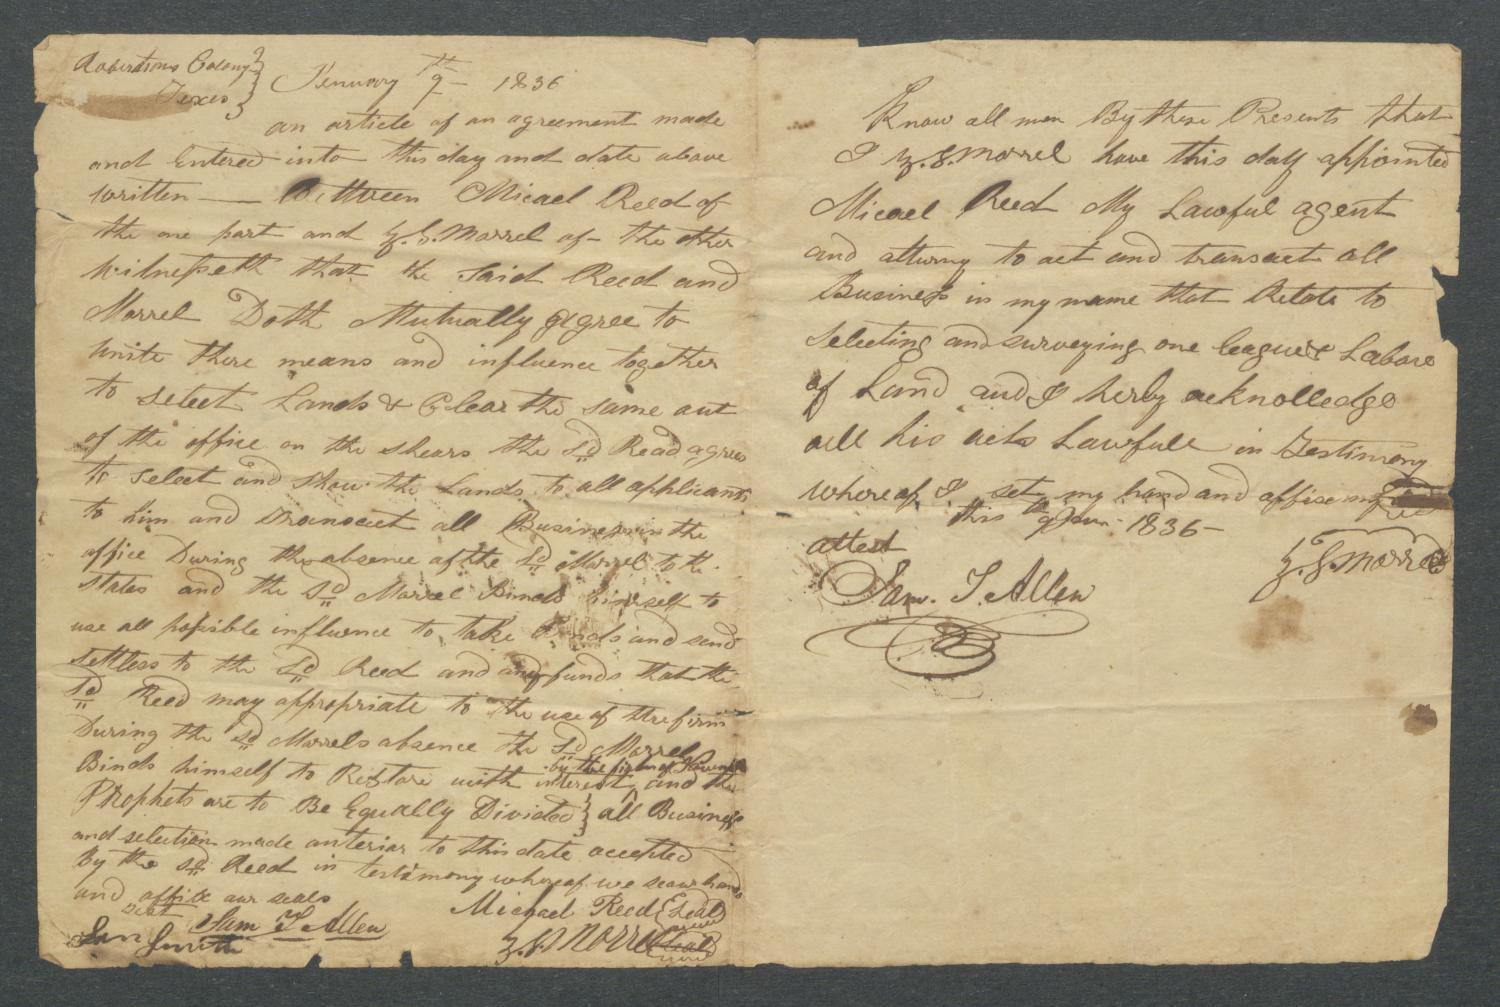 Robertsons Colony
Texas
Jenuary 9th 1836
an article of an agreement made
and Entered into this day and date above
written — Between Micael Reed of
the one part and Z. S. Morrel of the other
witnesseth that the Said Reed and
Morrel Doth Mutually agree to
unite there means and influence together
to select Lands & Clear the same out
of the office on the shears the Sd Read agrees
to select and Show the Lands to all applicants
to him and transact all Business in the
office During the absence of the Sd Morrel to the
States and the Sd Morrel Binds himself to
use all possible influence to take funds and send
settlers to the Sd Reed and any funds that the
Sd Reed may appropriate to the use of the firm
During the Sd Morrels absence the Sd Morrel
Binds himself to Restore with interest by the and the
Prophets are to Be Equally Divided all Business
and selection made anterior to this date accepted
By the Sd Reed in testimony whereof we set our hands
and affix our seals
Michael Reed Seal
test Sam T Allen
Smith
Z. S. Morrel Seal
Know all men By these Presents that
I Z. S. Morrel have this day appointed
Micael Reed My Lawful agent
and atturny to act and transact all
Business in my name that Relate to
Selecting and surveying one league & Labore
of Land and I herby acknolledge
all his acts Lawfull in Testimony
whereof I set my hand and affixe my
this 9th Jan. 1836
attest
Z. S. Morrel
Sam. T. Allen